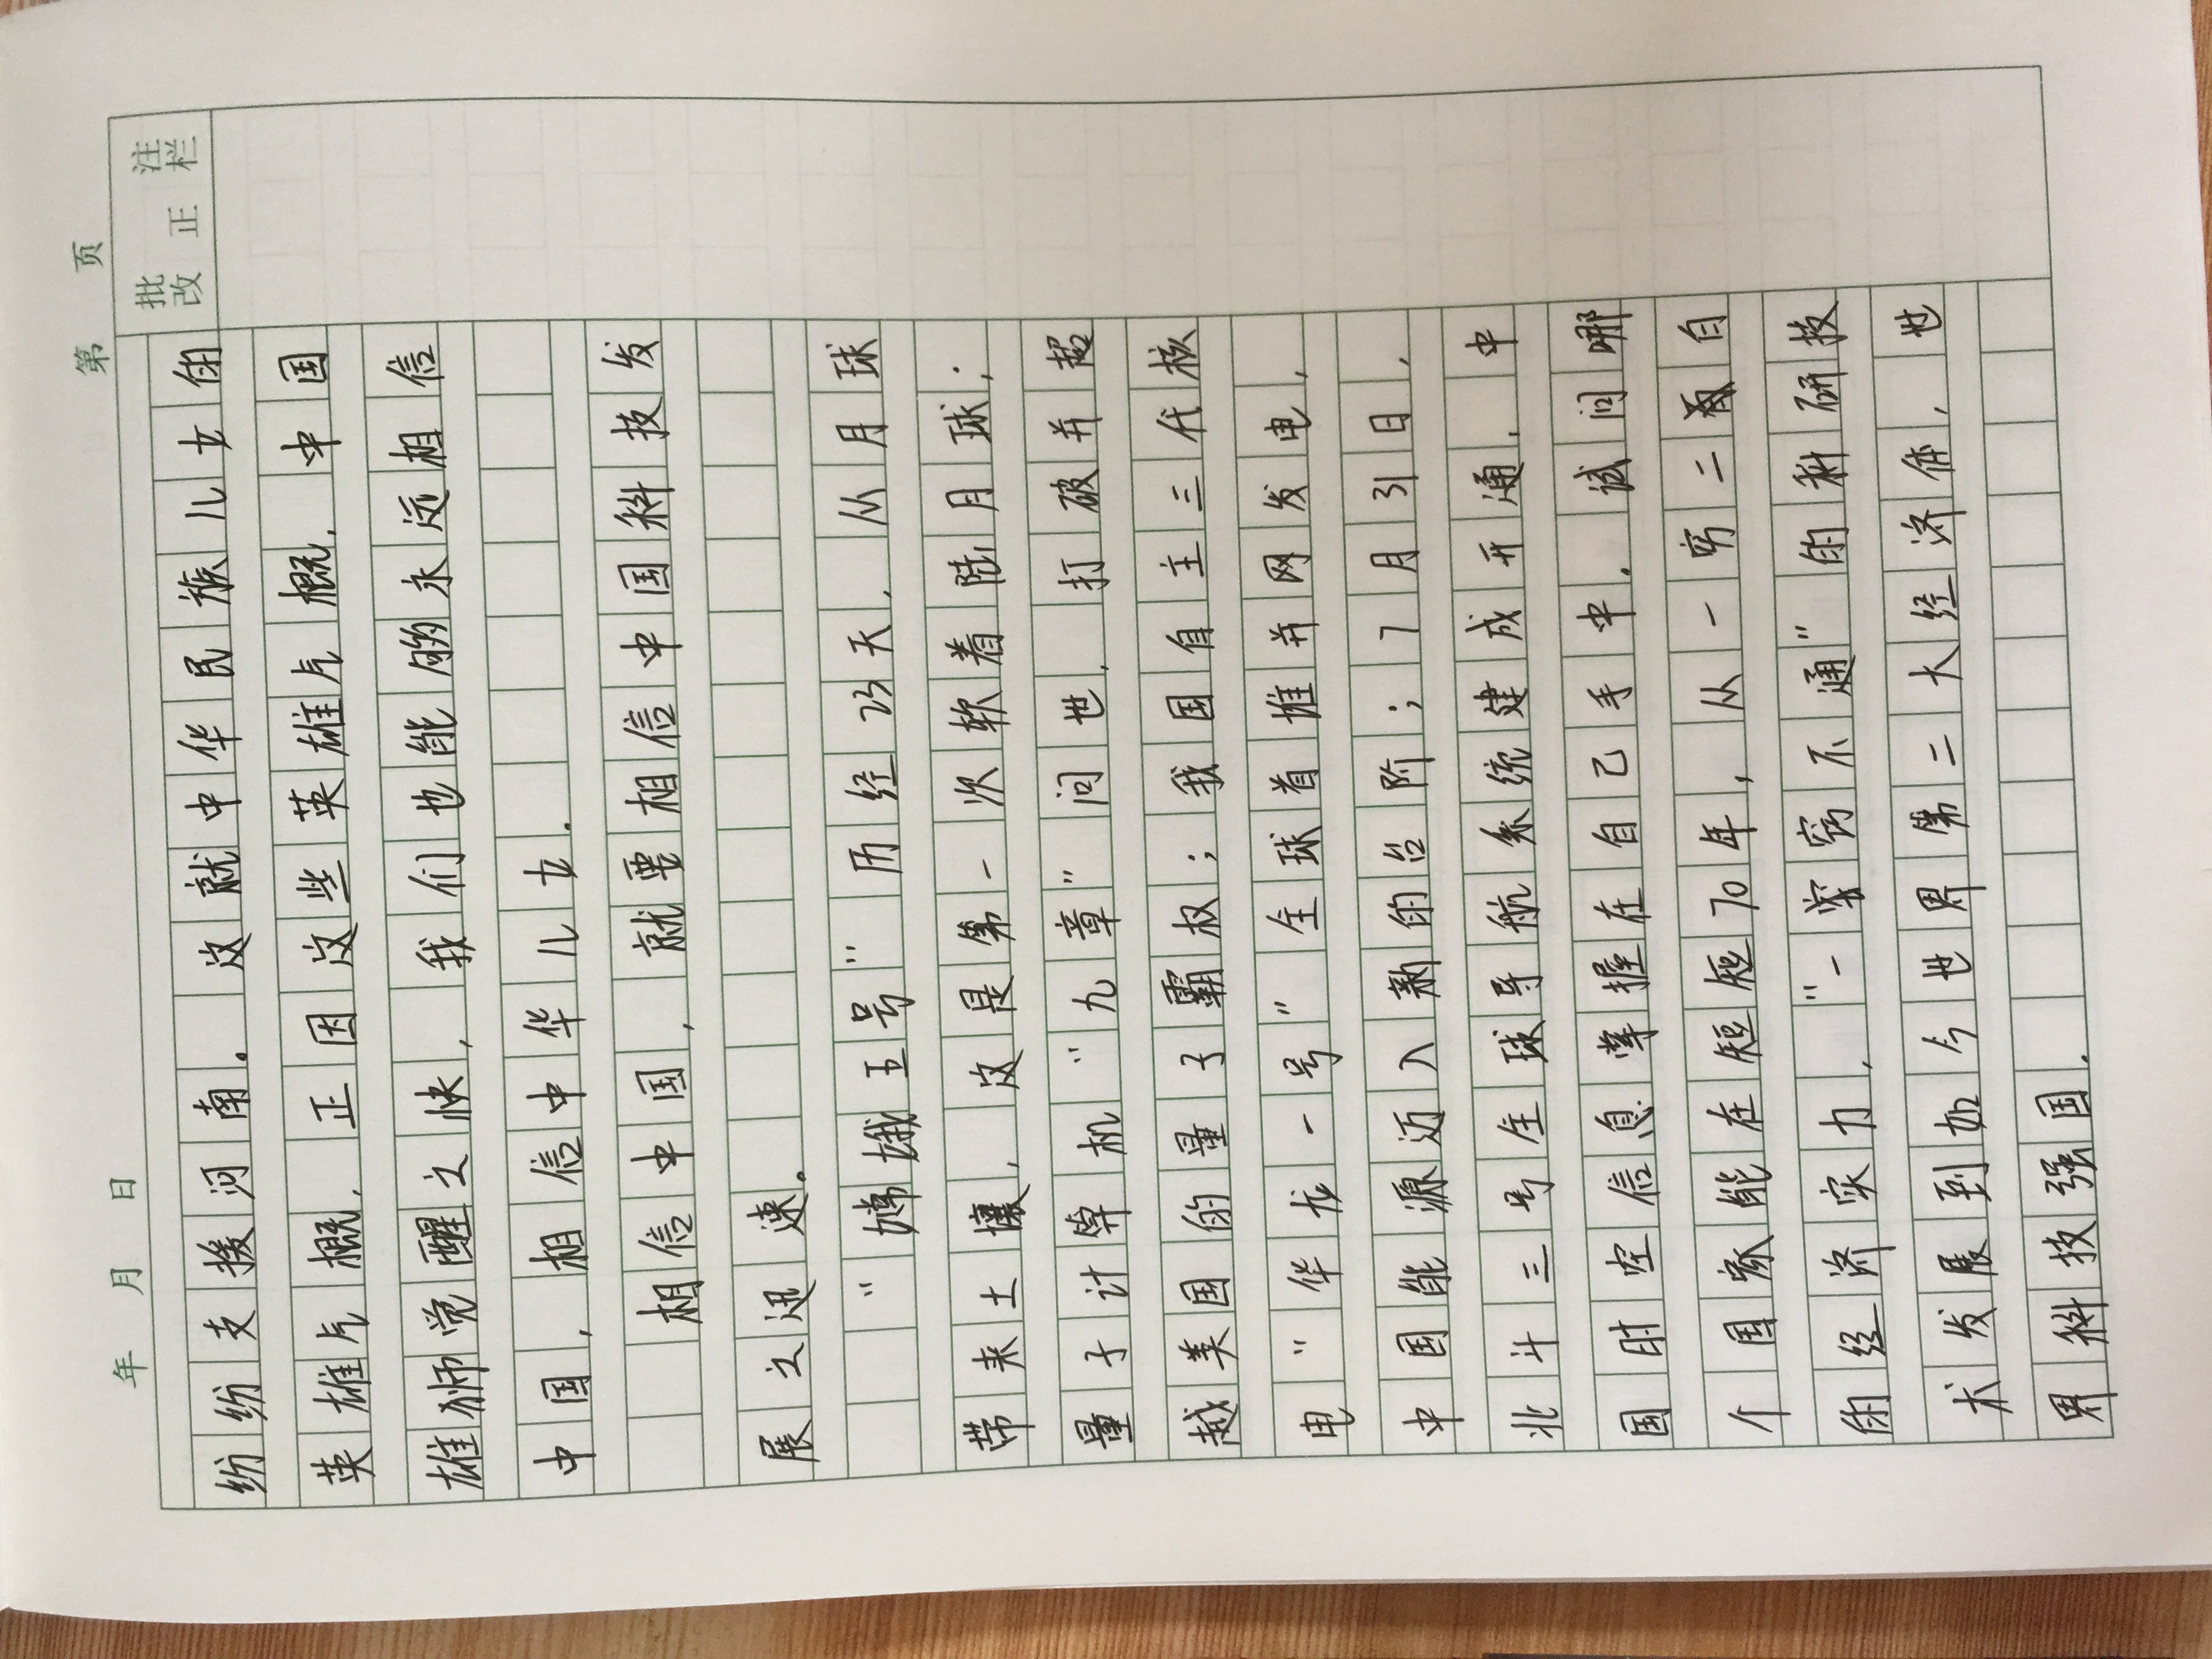 年 月 日 第 页
批 注
改 正 栏
纷纷支援河南。这就中华民族儿女的
英雄气概，正因这些英雄气概，中国
雄狮觉醒之快，我们也能够永远相信
中国，相信中华儿女。
相信中国，就要相信中国科技发
展之迅速。
“嫦娥五号”历经23天，从月球
带来土壤，这是第一次软着陆月球；
量子计算机“九章”问世，打破并超
越美国的量子霸权；我国自主三代核
电“华龙一号”全球首堆并网发电，
中国能源迈入新的台阶；7月31日，
北斗三号全球导航系统建成开通，中
国时空信息掌握在自己手中。试问哪
个国家能在短短70年，从一穷二白
的经济实力，“一穷窍不通”的科研技
术发展到如今世界第二大经济体，世
界科技强国。